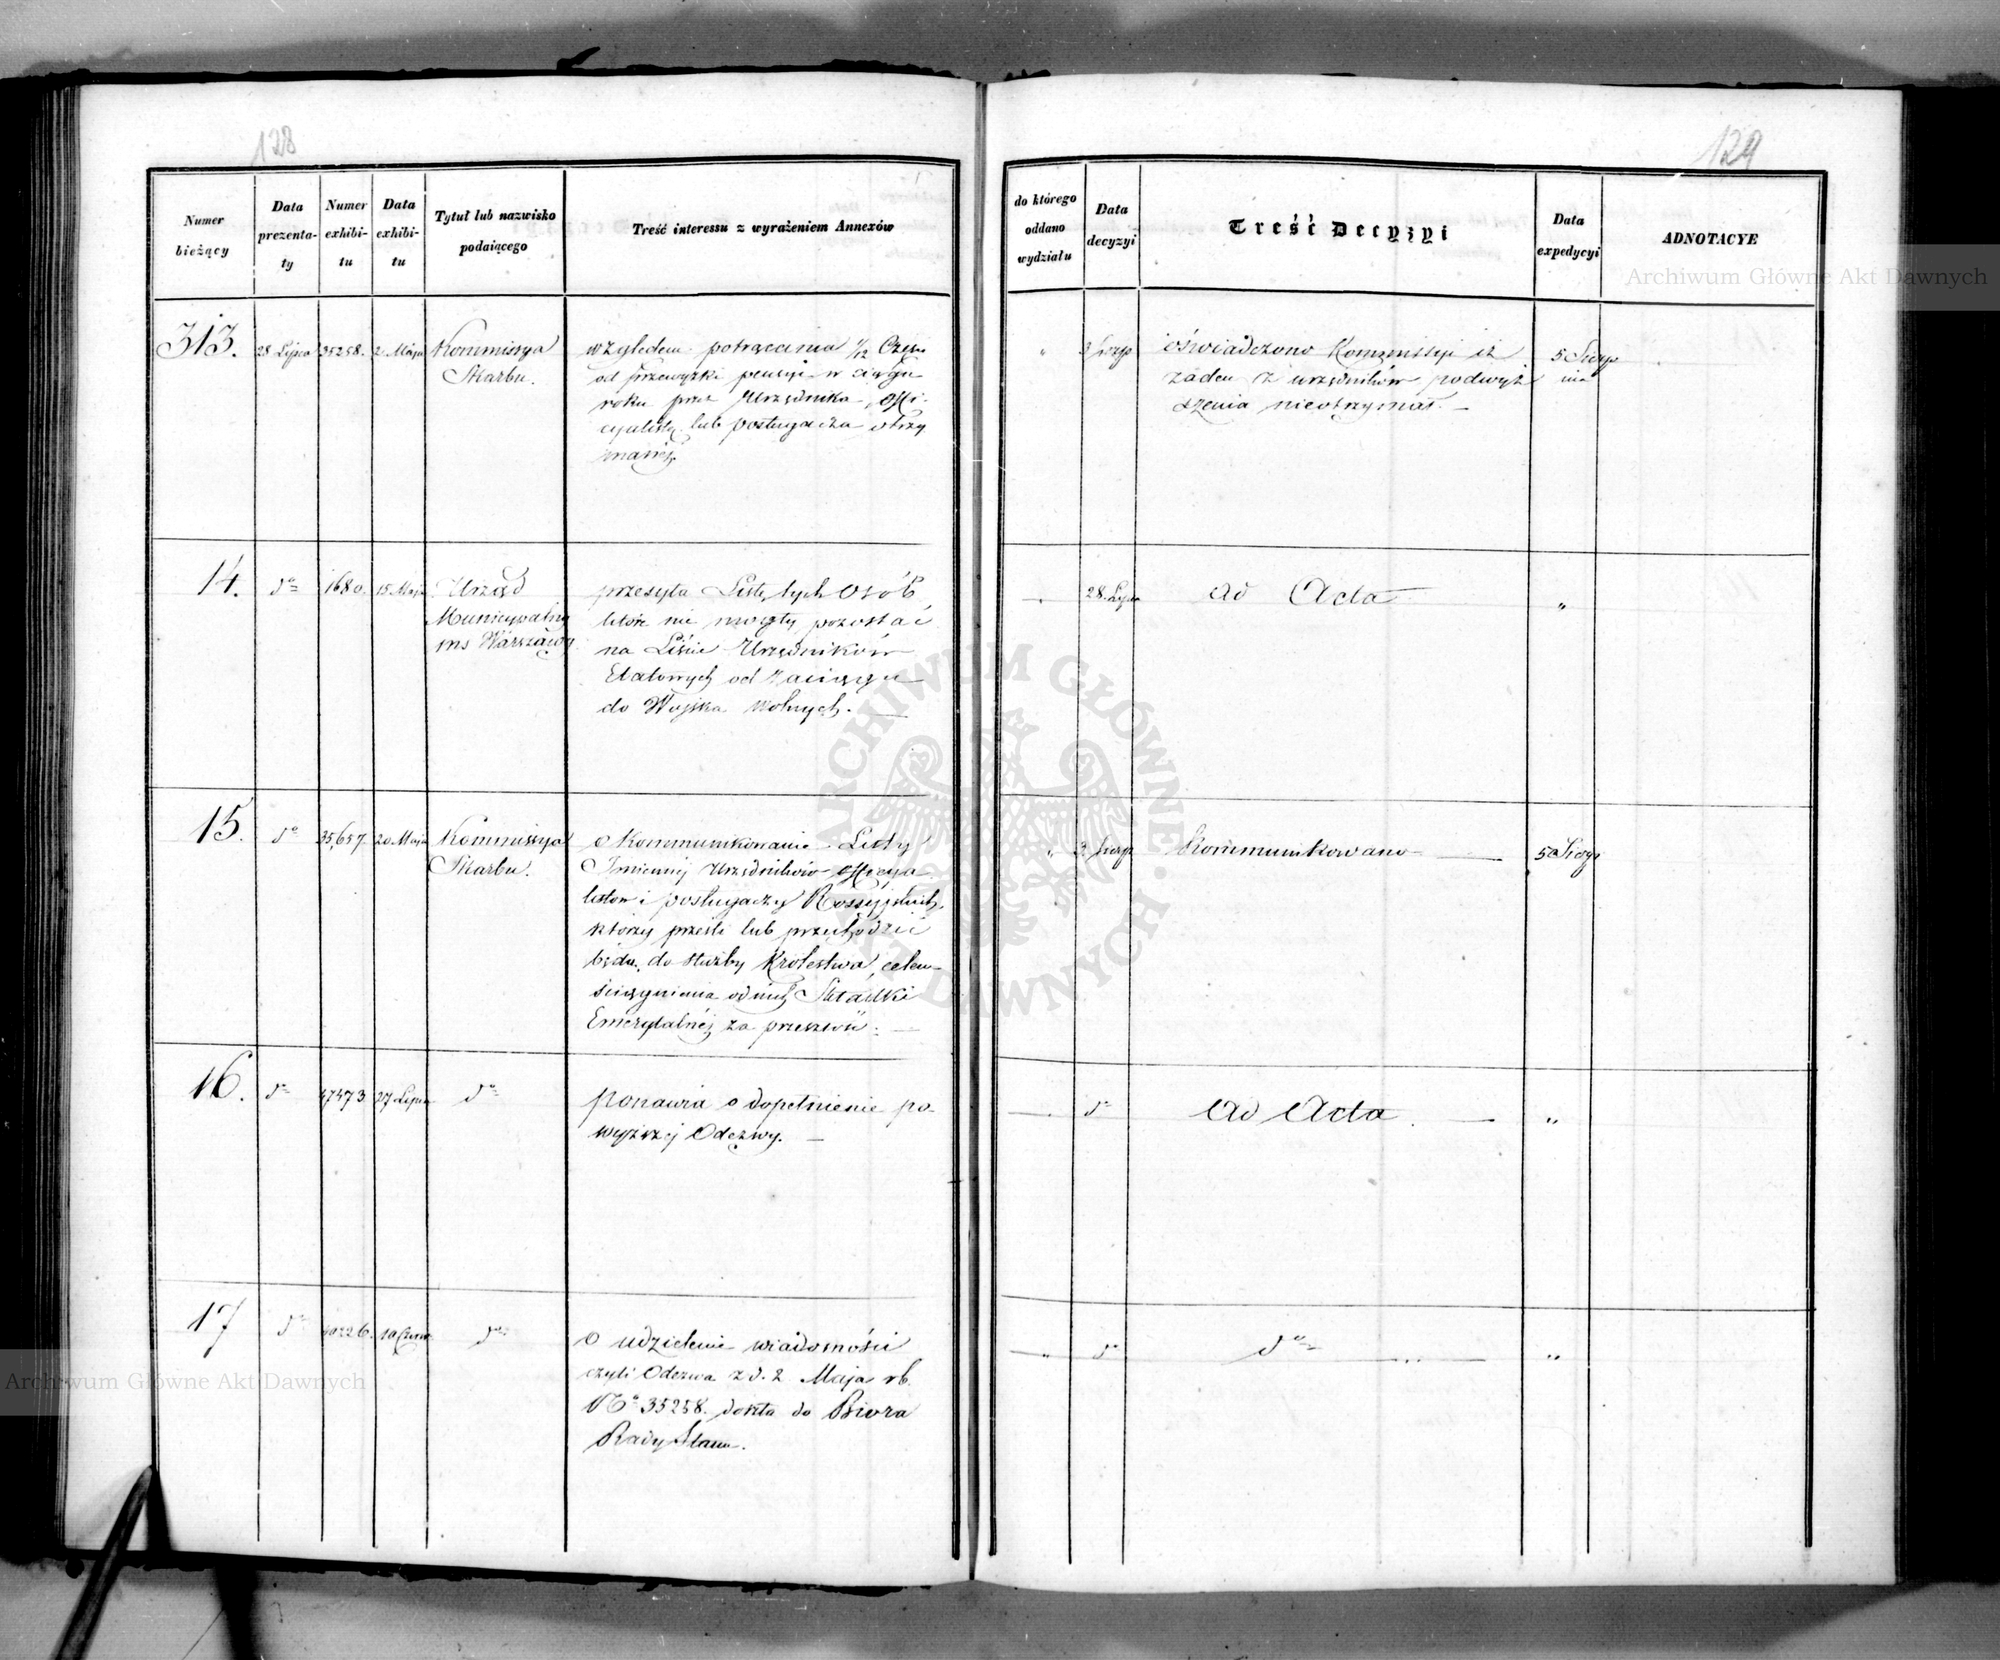 128
Numer bieżący
Data prezentaty
Numer exhibitu
Data exhibitu
Tytuł lub nazwisko podaiącego
Treść interessu z wyrażeniem Annexów
313.
28 Lipca
35258.
2 Maja
Kommissya
Skarbu.
względem potrącenia 1/12 Części
od przewyżki pensyi w ciągu
roku przez Urzędnika, Offi-
cyalistę lub posługacza otrzy
maney.
14.
do
1680.
15 Maja
Urząd
Municypalny
ms Warszawy.
przesyła Listę tych Osób,
które nie mogły pozostać
na Liście Urzędników
Etatowych od zaciągu
do Wojska wolnych.
15.
do
35,657.
20 Maja
Kommissya
Skarbu.
o Kommunikowanie Listy
Imiennej Urzędników Officya
listów i posługaczy Rossyjskich,
którzy prześli lub przechodzić
będą, do służby Królestwa, celem
ściągnienia od nich Składki
Emerytalnéj za przeszłość.
16.
do
47473
27 Lipca
do
ponawia o dopełnienie po-
wyższej Odezwy.
17
do
40226.
10 Czerw
do
O udzielenie wiadomości
czyli Odezwa z d. 2 Maja rb.
No 35258. doszła do Biura
Rady Stanu.
129
do którego oddano wydziału
Data decyzyi
Treść Decyzyi
Data expedycyi
ADNOTACYE
"
3 Sierp
oświadczono Kommissyi iż
żaden z urzędników podwyż
szenia nieotrzymał.
5 Sierp
nia
28 Lipca
Ad Acta
"
"
3 Sierp
Kommunikowano
5 Sierp
do
Ad Acta.
"
"
do
do
"
Archiwum Główne Akt Dawnych
ARCHIWUM GŁÓWNE AKT DAWNYCH
Archiwum Główne Akt Dawnych